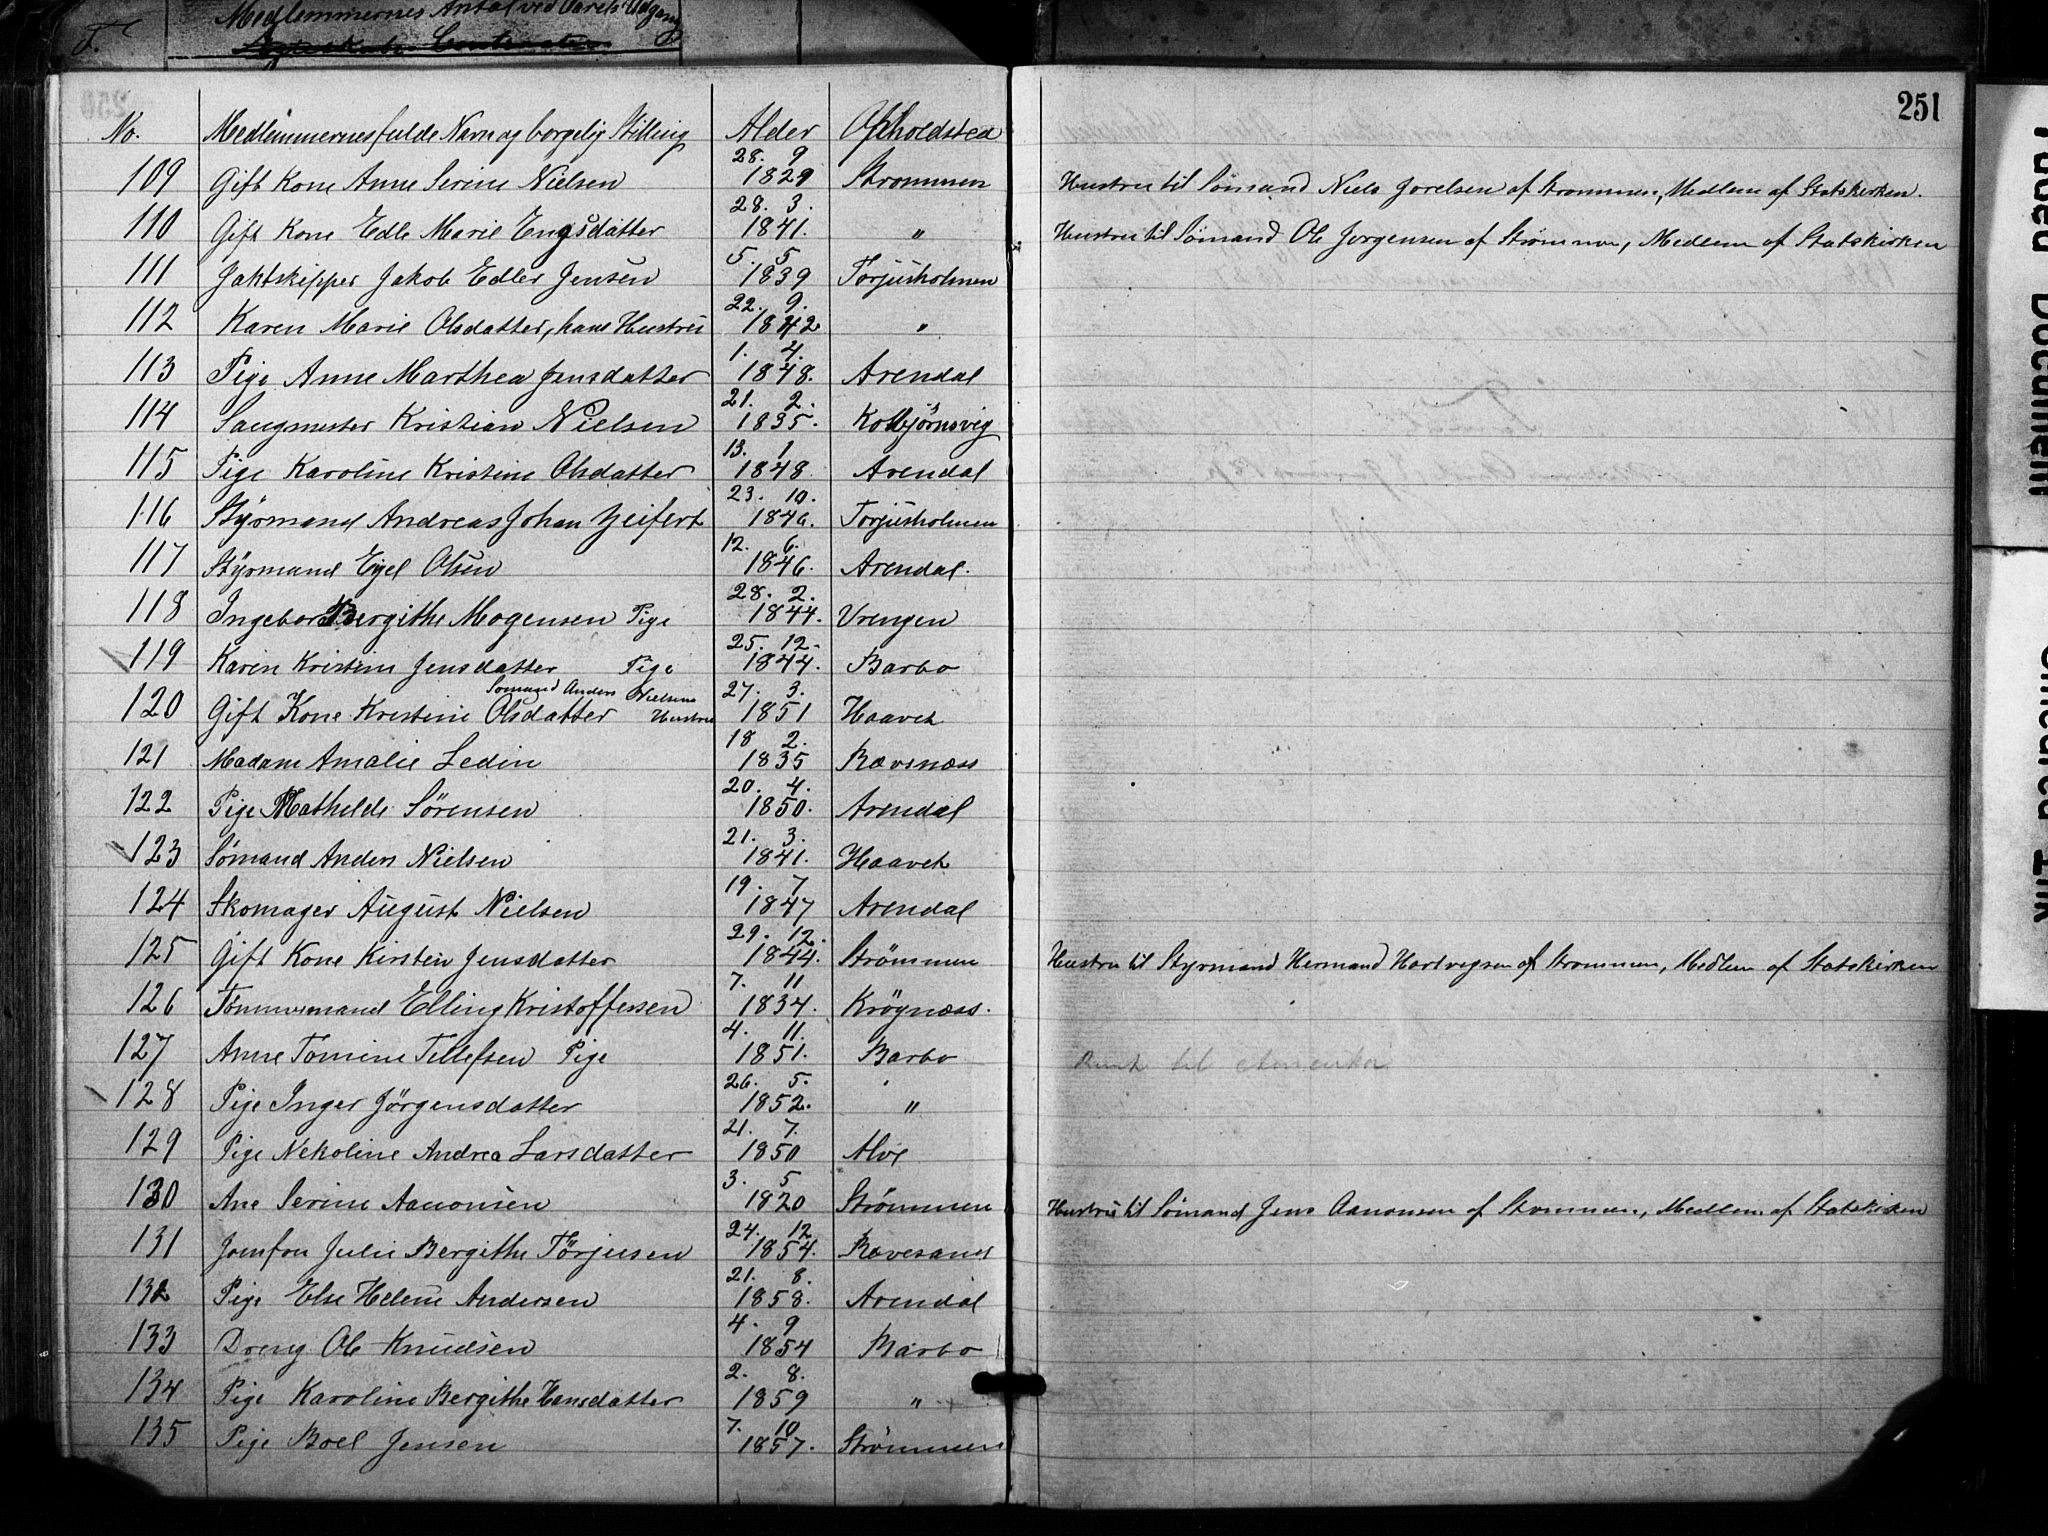 F.
Medlemmernes Antal ved Aarets Udgang
251
No. Medlemmernes fulde Navn og borgelig Stilling Alder Opholdsted
109 Gift Kone Anne Serine Nielsen 28. 9 1829 Strommen Hustru til Sømand Niels Jorelsen af Strommen, Medlem af Statskirken.
110 Gift Kone Edle Marie Engsdatter 28. 3. 1841. " Hustru til Sømand Ole Jorgensen af Strømmen, Medlem af Statskirken
111 Jaktskipper Jakob Edler Jensen 5. 5 1839 Torjusholmen
112 Karen Marie Olsdatter, hans Hustru 22. 9. 1842 "
113 Pige Anne Marthea Jensdatter 1. 4. 1848. Arendal
114 Saugmester Kristian Nielsen 21. 2. 1835. Kolbjørnsvig
115 Pige Karoline Kristine Olsdatter 13. 1 1848 Arendal
116 Styrmand Andreas Johan Zeifert 23. 10. 1846. Torjusholmen
117 Styrmand Ejel Olsen 12. 6. 1846. Arendal.
118 Ingebor Bergithe Mogensen Pige 28. 2. 1844. Vrengen
119 Karen Kristine Jensdatter Pige 25. 12. 1844. Barbo
Sømand Anders Nielsens
120 Gift Kone Kristine Olsdatter Hustru 27. 3. 1851 Haavet
121 Madam Amalie Ledin 18 2. 1835 Rævsnæss
122 Pige Mathilde Sørensen 20. 4. 1850. Arendal
123 Sømand Anders Nielsen 21. 3. 1841. Haavet
124 Skomager August Nielsen 19. 7 1847 Arendal
125 Gift Kone Kirsten Jensdatter 29. 12. 1844. Strömmen Hustru til Styrmand Hermand Hartvigsen af Strommen, Medlem af Statskirken
126 Tømmermand Elling Kristoffersen 7. 11 1834. Krögnæss.
127 Anne Tomine Tellefsen Pige 4. 11. 1851. Barbo Reist til Amerika
128 Pige Inger Jörgensdatter 26. 5. 1852. "
129 Pige Nekoline Andrea Larsdatter 21. 7. 1850 Alve
130 Ane Serine Aanonsen 3. 5 1820 Strømmen Hustru til Sømand Jens Aanonsen af Strommen, Medlem af Statskirken
131 Jomfru Julie Bergithe Törjusen 24. 12 1854. Rævesand
132 Pige Else Helene Andersen 21. 8. 1858. Arendal
133 Dreng Ole Knudsen 4. 9 1854 Barbo
134 Pige Karoline Bergithe Hansdatter 2. 8. 1859 "
135 Pige Boel Jensen 7. 10 1857. Strömmen
Faded Document